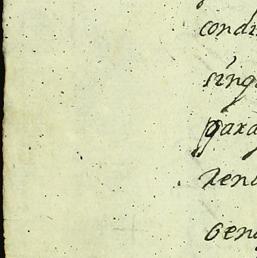 condi
sing
para
ren
Gen